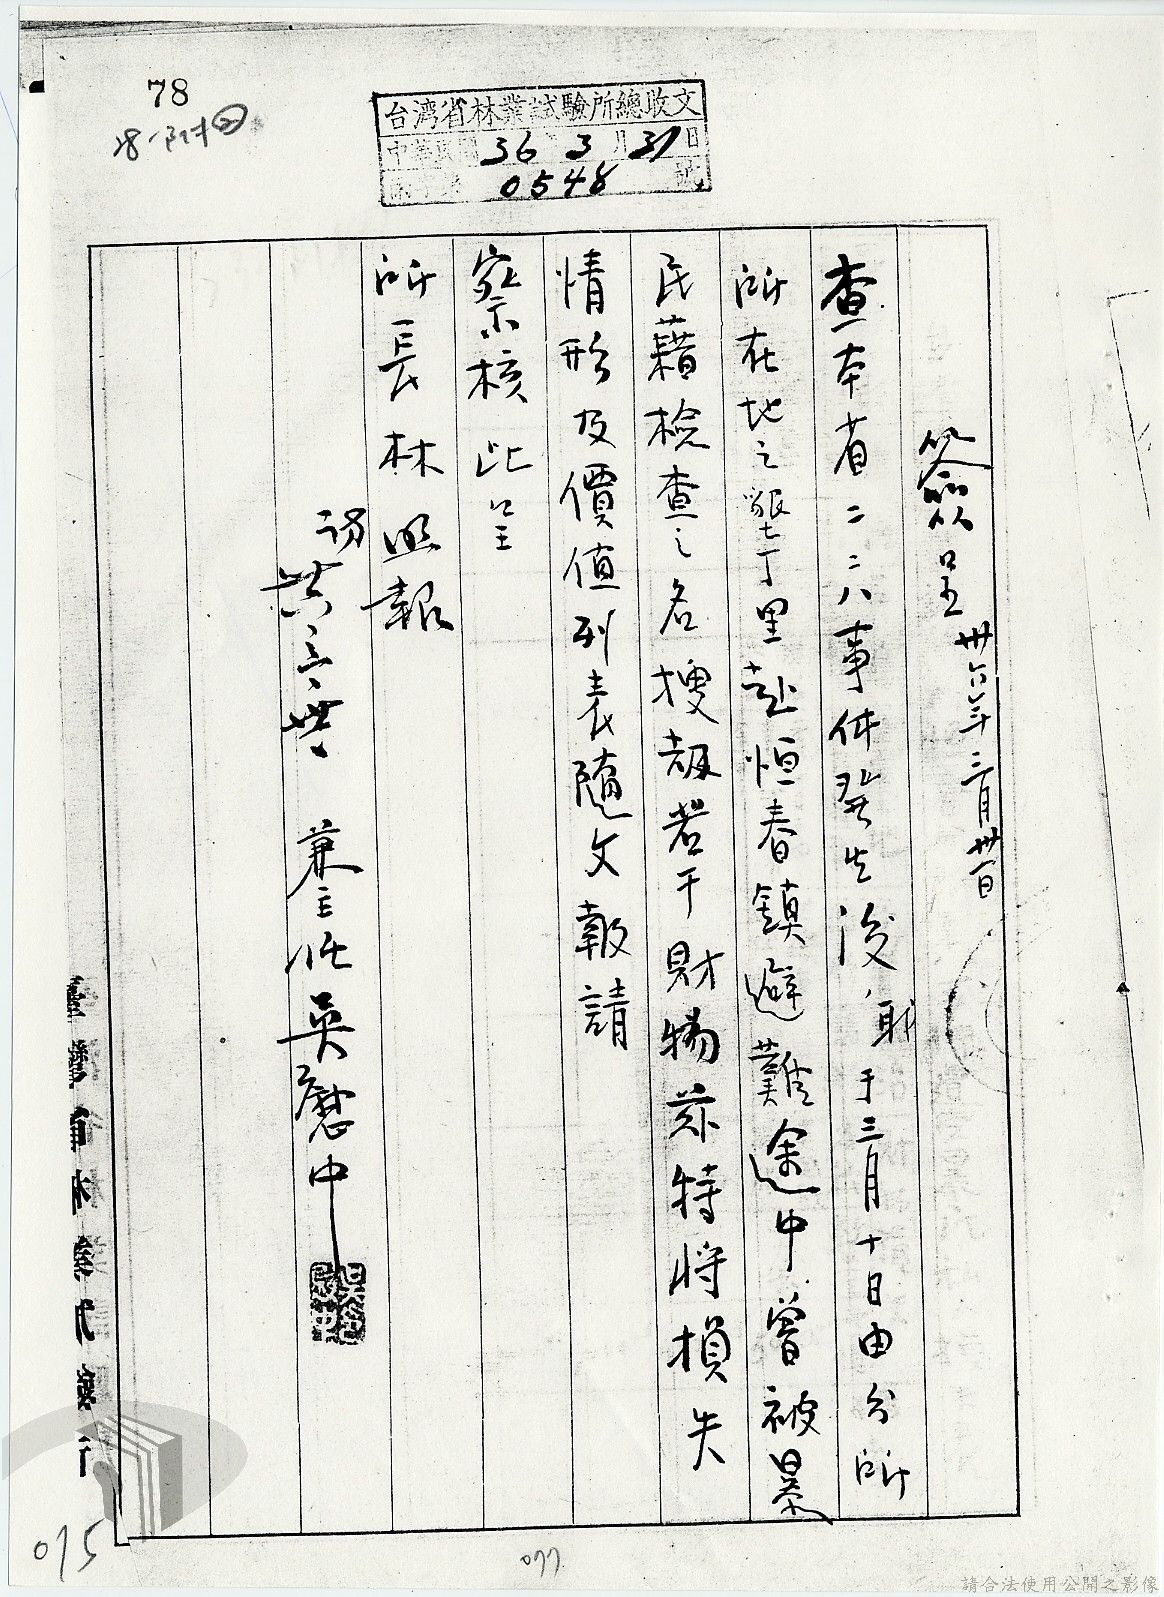 78
28-附②
台湾省林業試驗所總收文
中華民國36年3月31日
0548號
簽呈 卅六年三月卅一日
查本省二二八事件發生後，職于三月十日由分所
所在地之墾丁里赴恒春鎮避難途中曾被暴
民藉檢查之名搜刼若干財物茲特將損失
情形及價值列表隨文報請
察核此呈
所長林
兼主任吳慰中
臺灣省林業試驗所
015
077
請合法使用公開之影像